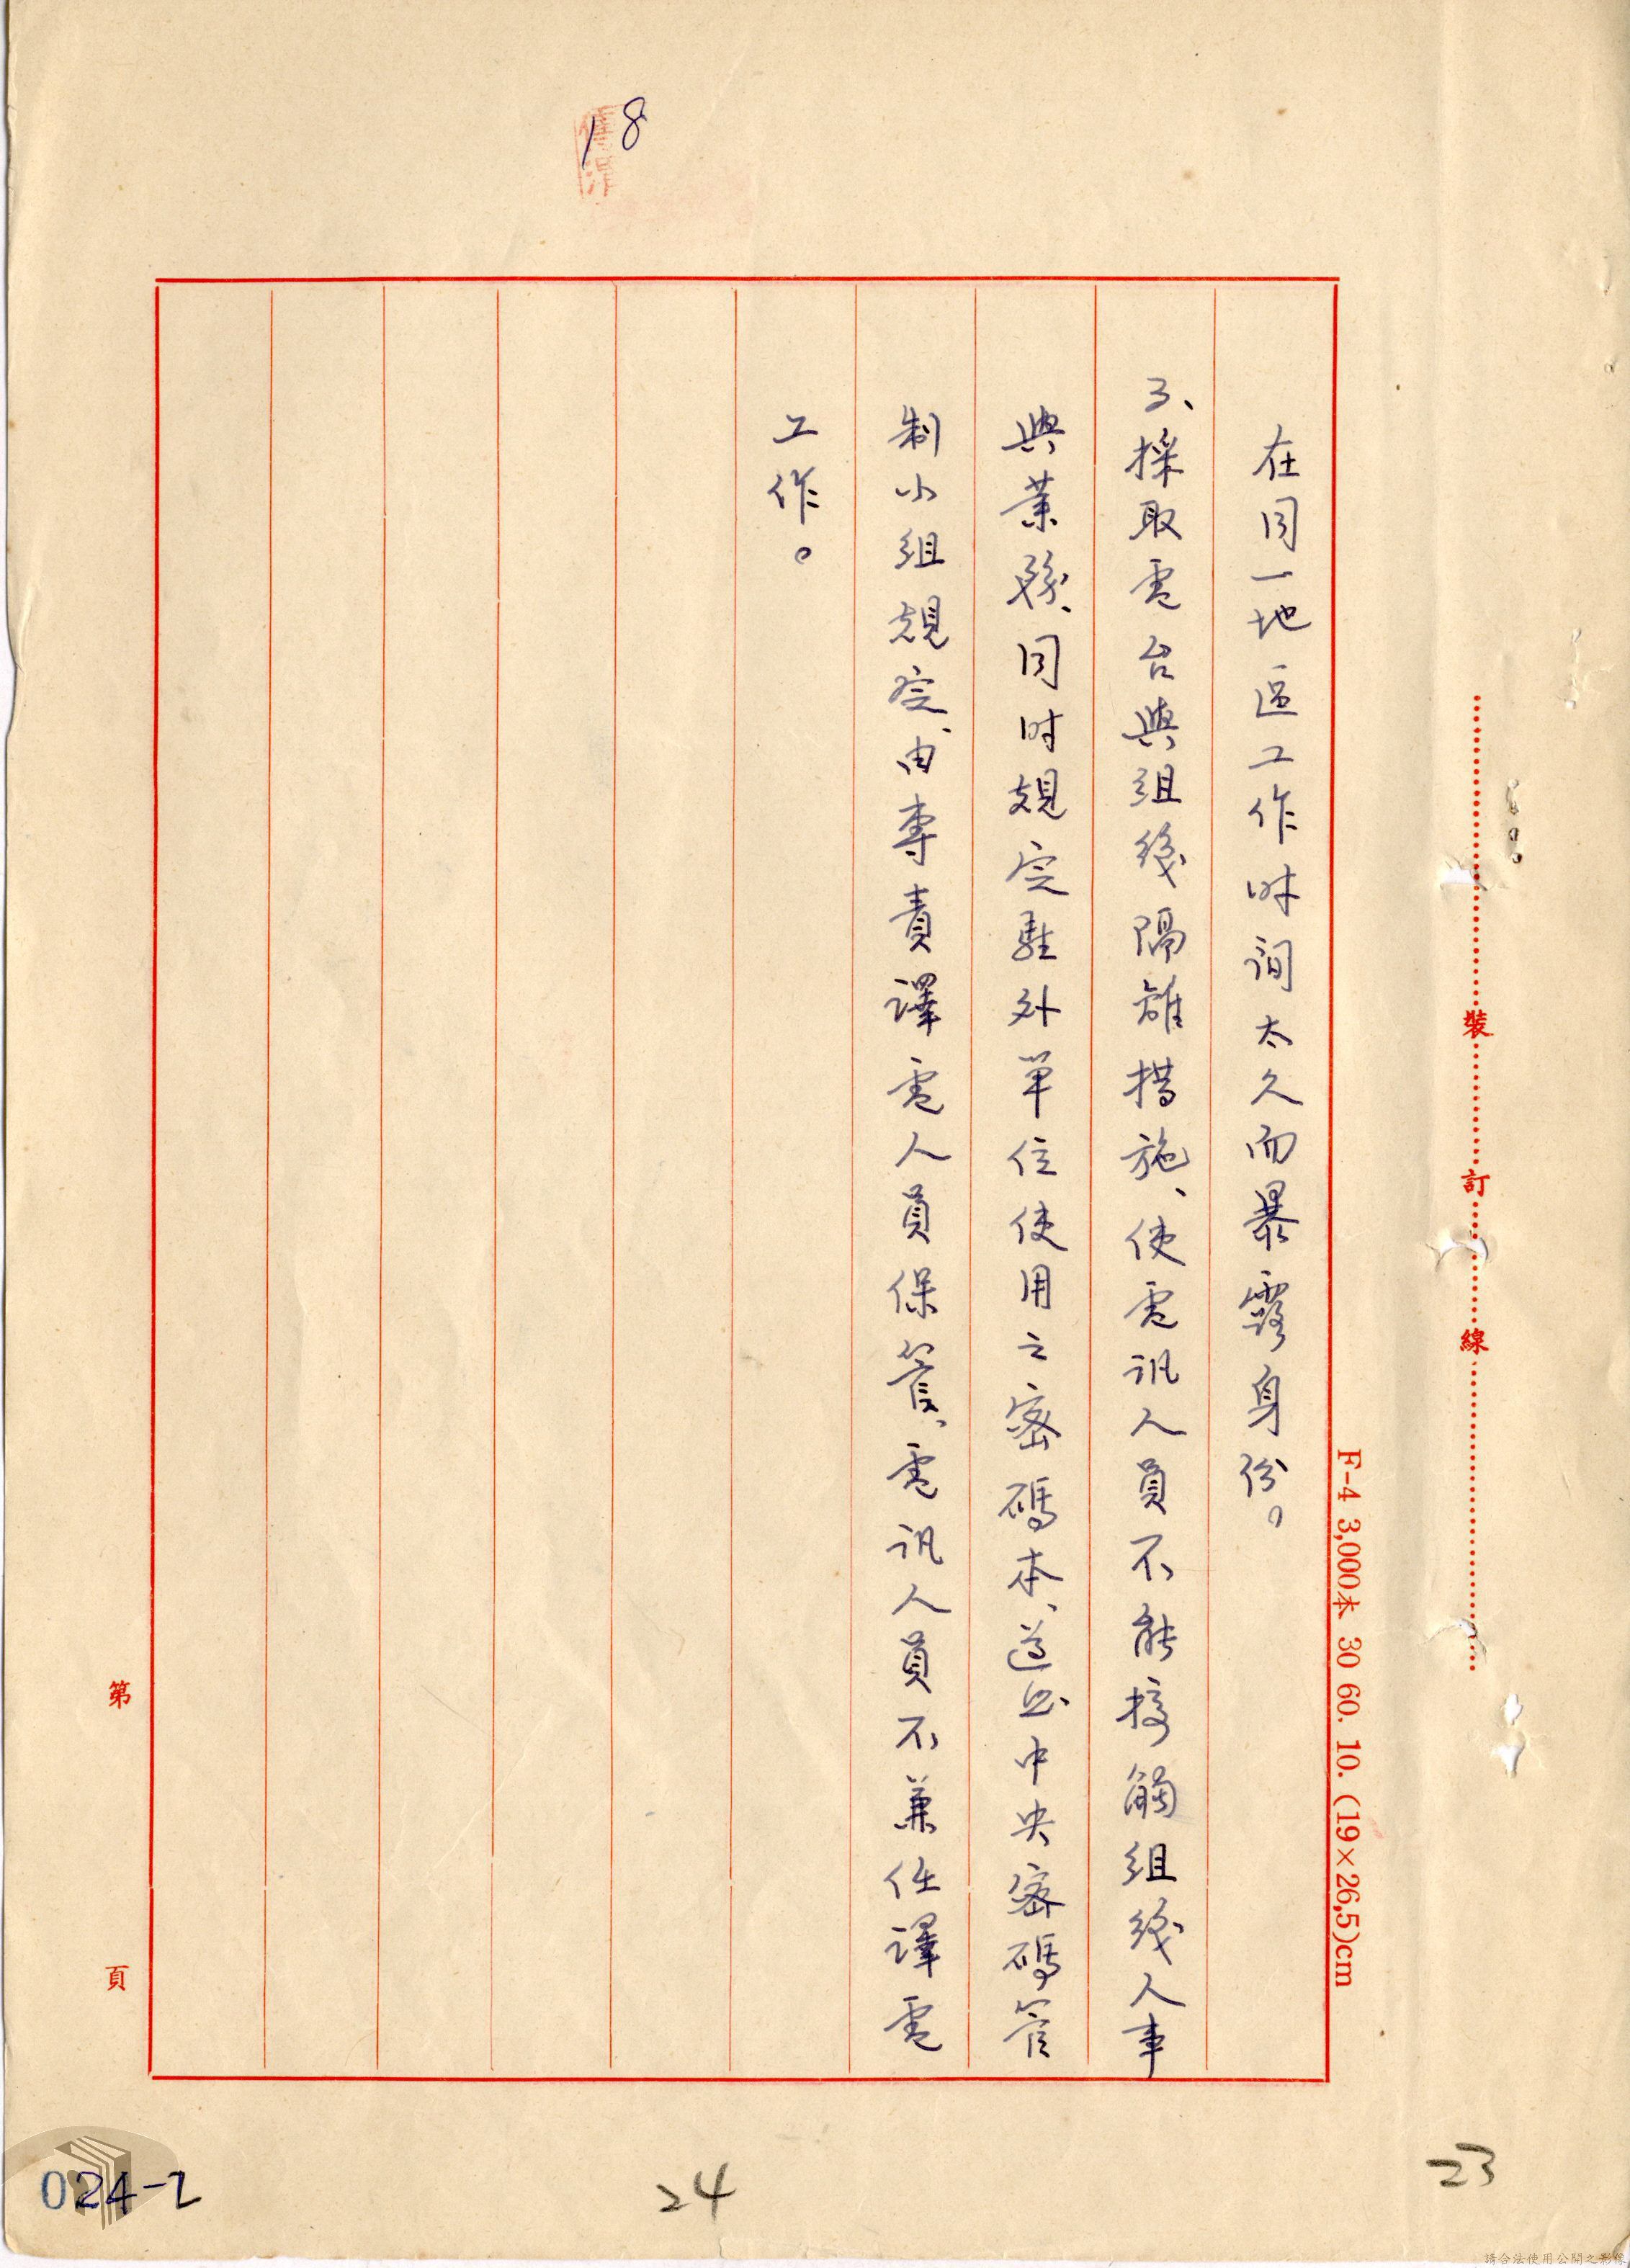 18
裝訂線
F-4 3,000本 30 60. 10. (19×26,5)cm
在同一地區工作時间太久而暴露身份。
3、採取電台與組綫隔離措施、使電訊人員不能接觸組綫人事
與業務、同时規定駐外单位使用之密碼本、遵照中央密碼管
制小組規定、由專責譯電人員保管、電訊人員不兼任譯電
工作。
第 頁
024-2
24
23
請合法使用公開之影像